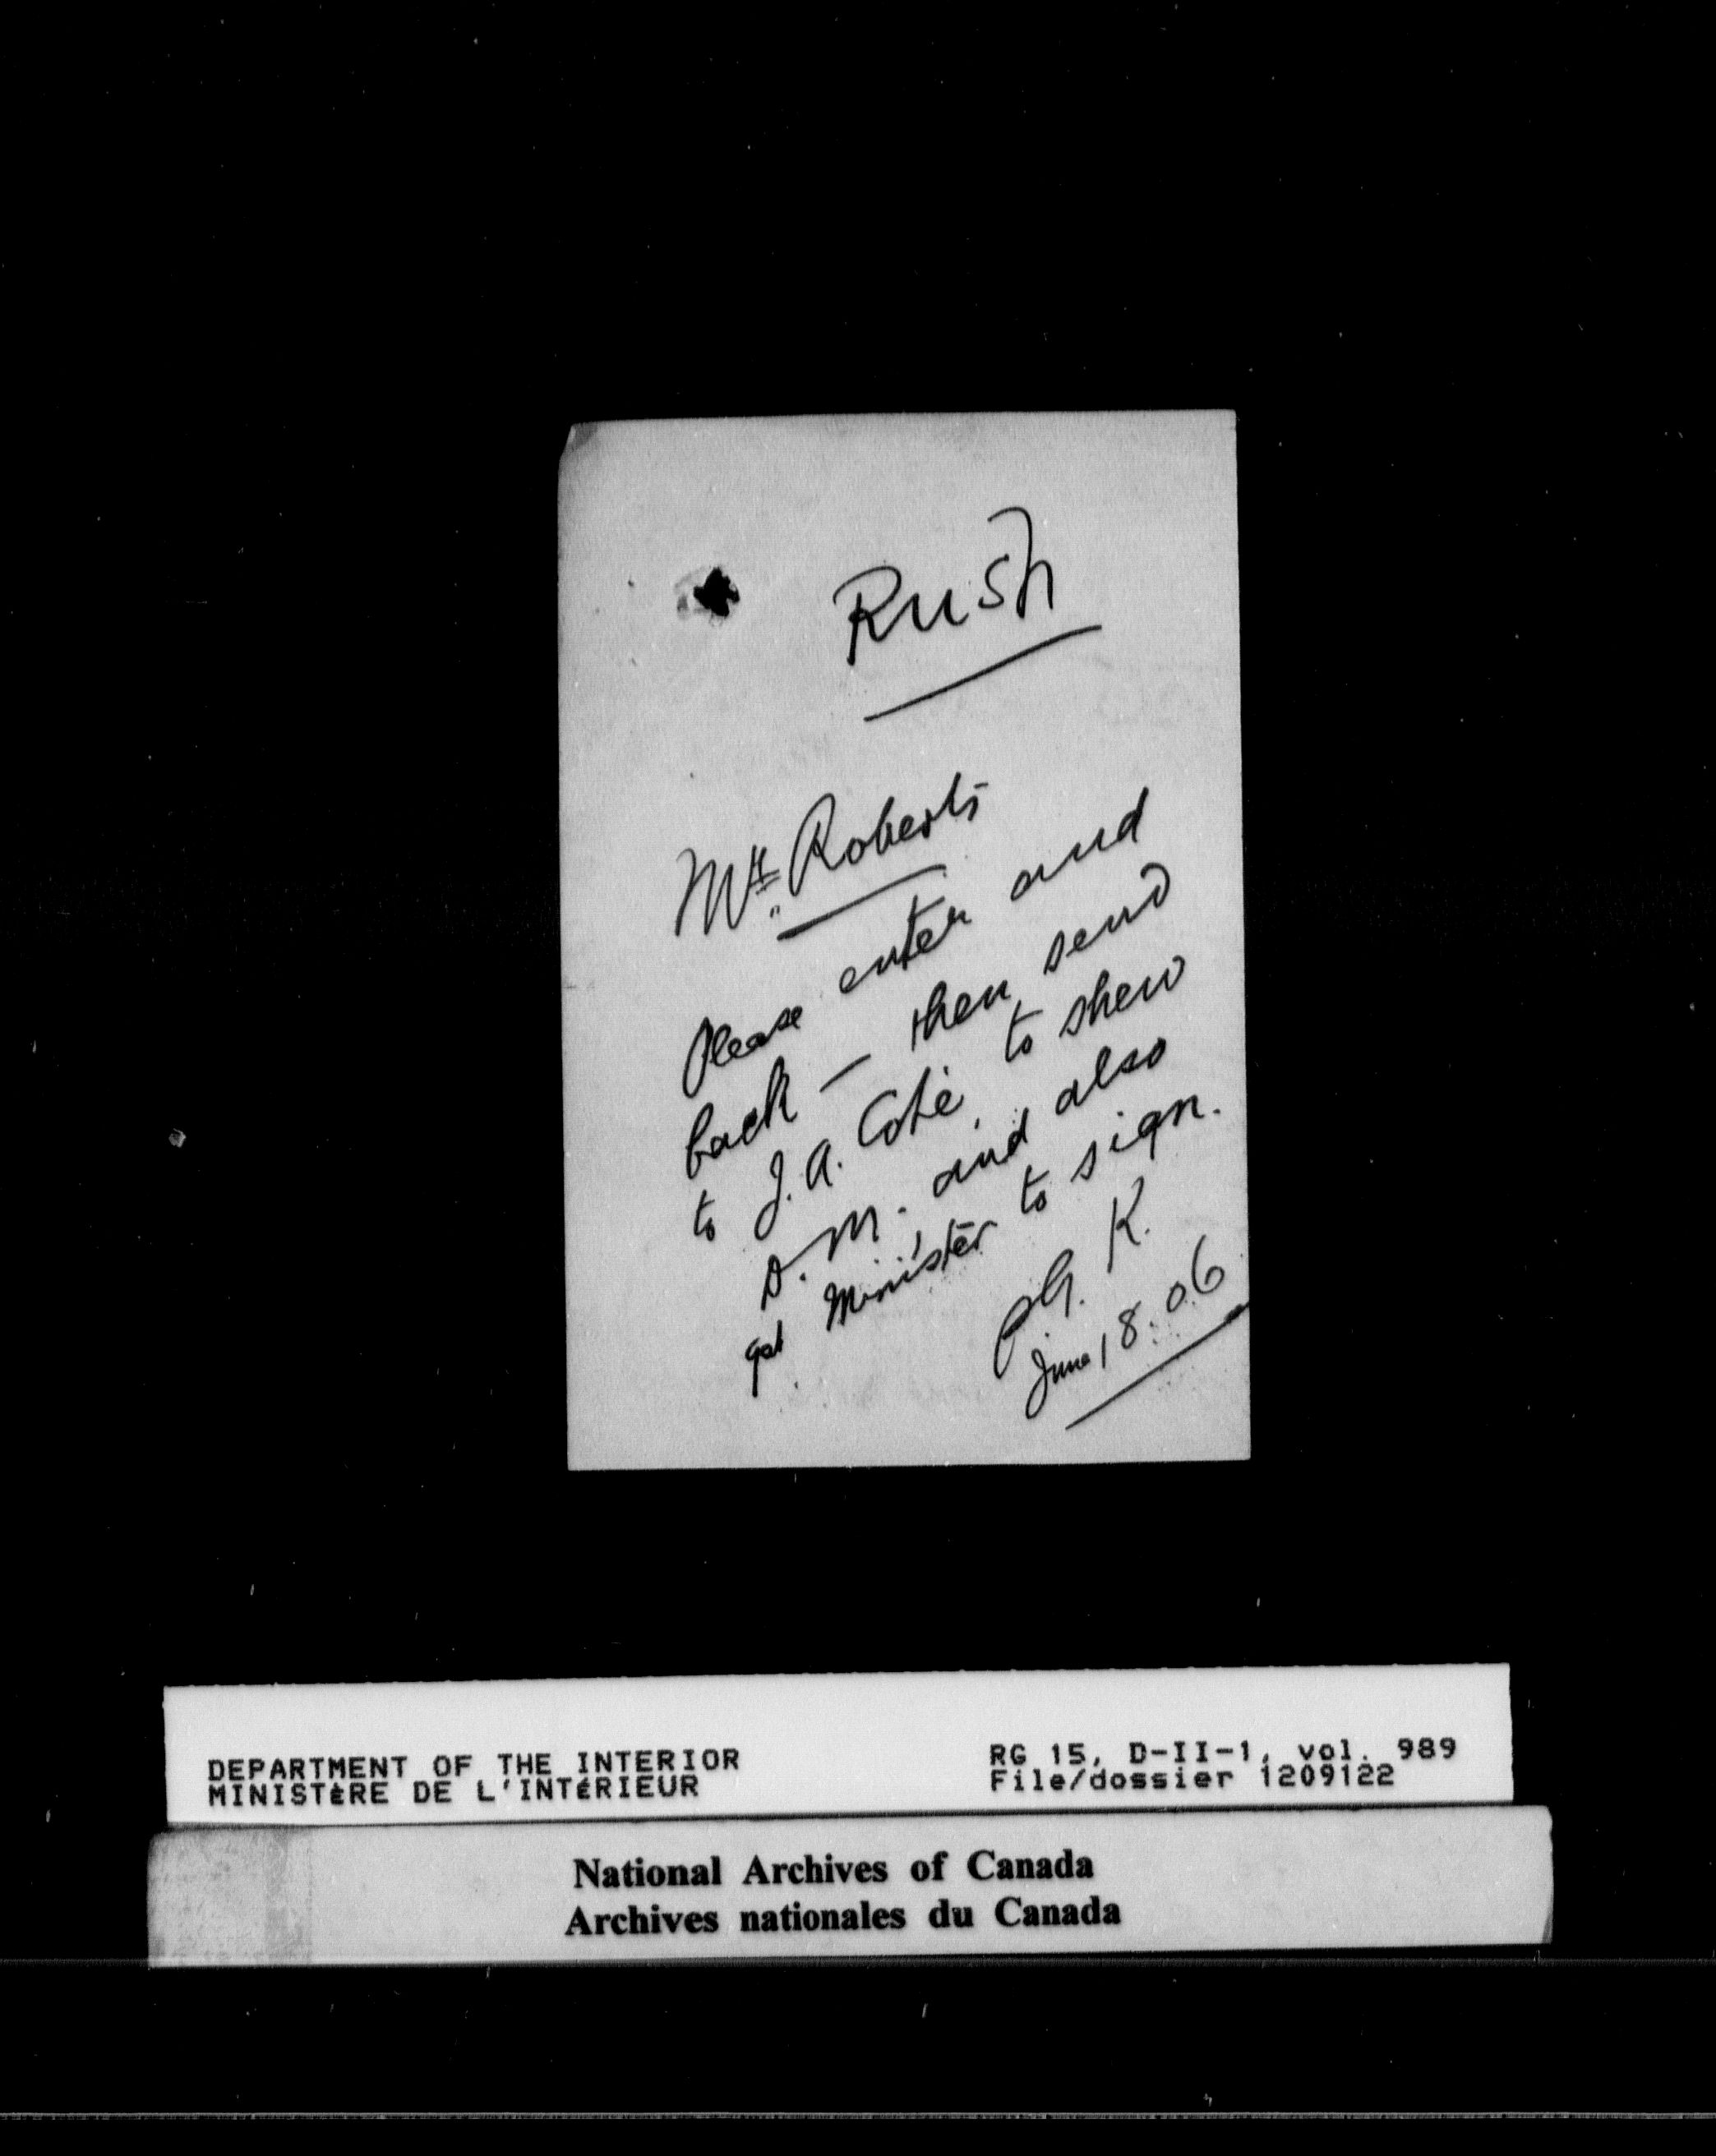 Rush
Mr. Roberts
Please enter and
back — then send
to J. A. Coté, to shew
D. M. and also
get Minister to sign.
P.G. K.
June 18. 06
DEPARTMENT OF THE INTERIOR
MINISTÈRE DE L'INTÉRIEUR
RG 15, D-II-1, vol. 989
File/dossier 1209122
National Archives of Canada
Archives nationales du Canada